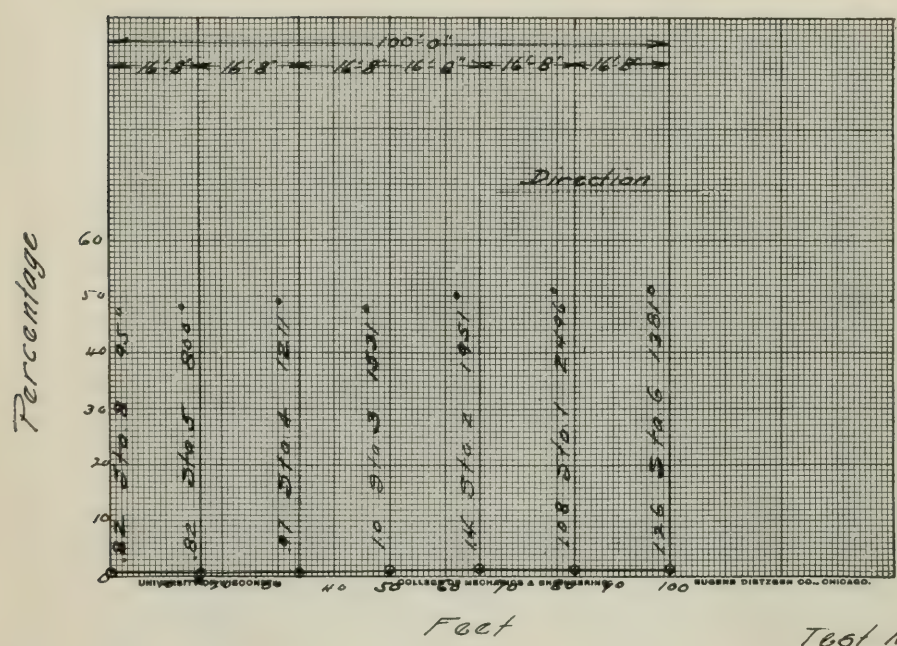 100'0"
16'8" 16'8" 16'8" 16'8" 16'8" 16'8"
Direction
Percentage
60
50
40
30
20
10
0
.82 Sta. 8 95°
.82 Sta 5 800°
.97 Sta. 4 1211°
1.0 Sta. 3 1531°
1.4 Sta. 2 1951°
1.08 Sta. 1 2496°
1.26 Sta 6 1381°
UNIVERSITY OF WISCONSIN COLLEGE OF MECHANICS & ENGINEERING EUGENE DIETZGEN CO., CHICAGO.
40 50 60 70 80 90 100
Feet
Test